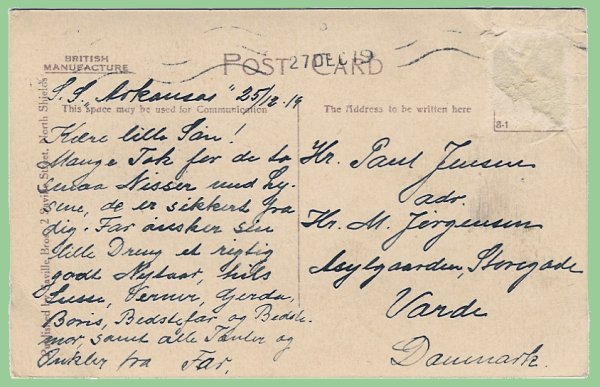 BRITISH
MANUFACTURE
POST CARD
27 DEC 19
S.S. "Arkansas" 25/12-19
This space may be used for Communication
The Address to be written here
8-1
Kære lille Søn!
Mange Tak for de to
smaa Nisser med Ly-
sene, de er sikkert fra
dig. Far ønsker sin
lille Dreng et rigtig
godt Nytaar, hils
Lusse, Verner, Gerda,
Boris, Bedstefar og Bedste-
mor, samt alle Tanter og
Onkler fra Far.
Hr. Paul Jensen
adr.
Hr. M. Jørgensen
Asylgaarden, Storegade
Varde
Danmark.
Published by Saville, Bros., 2 Saville Street, North Shields